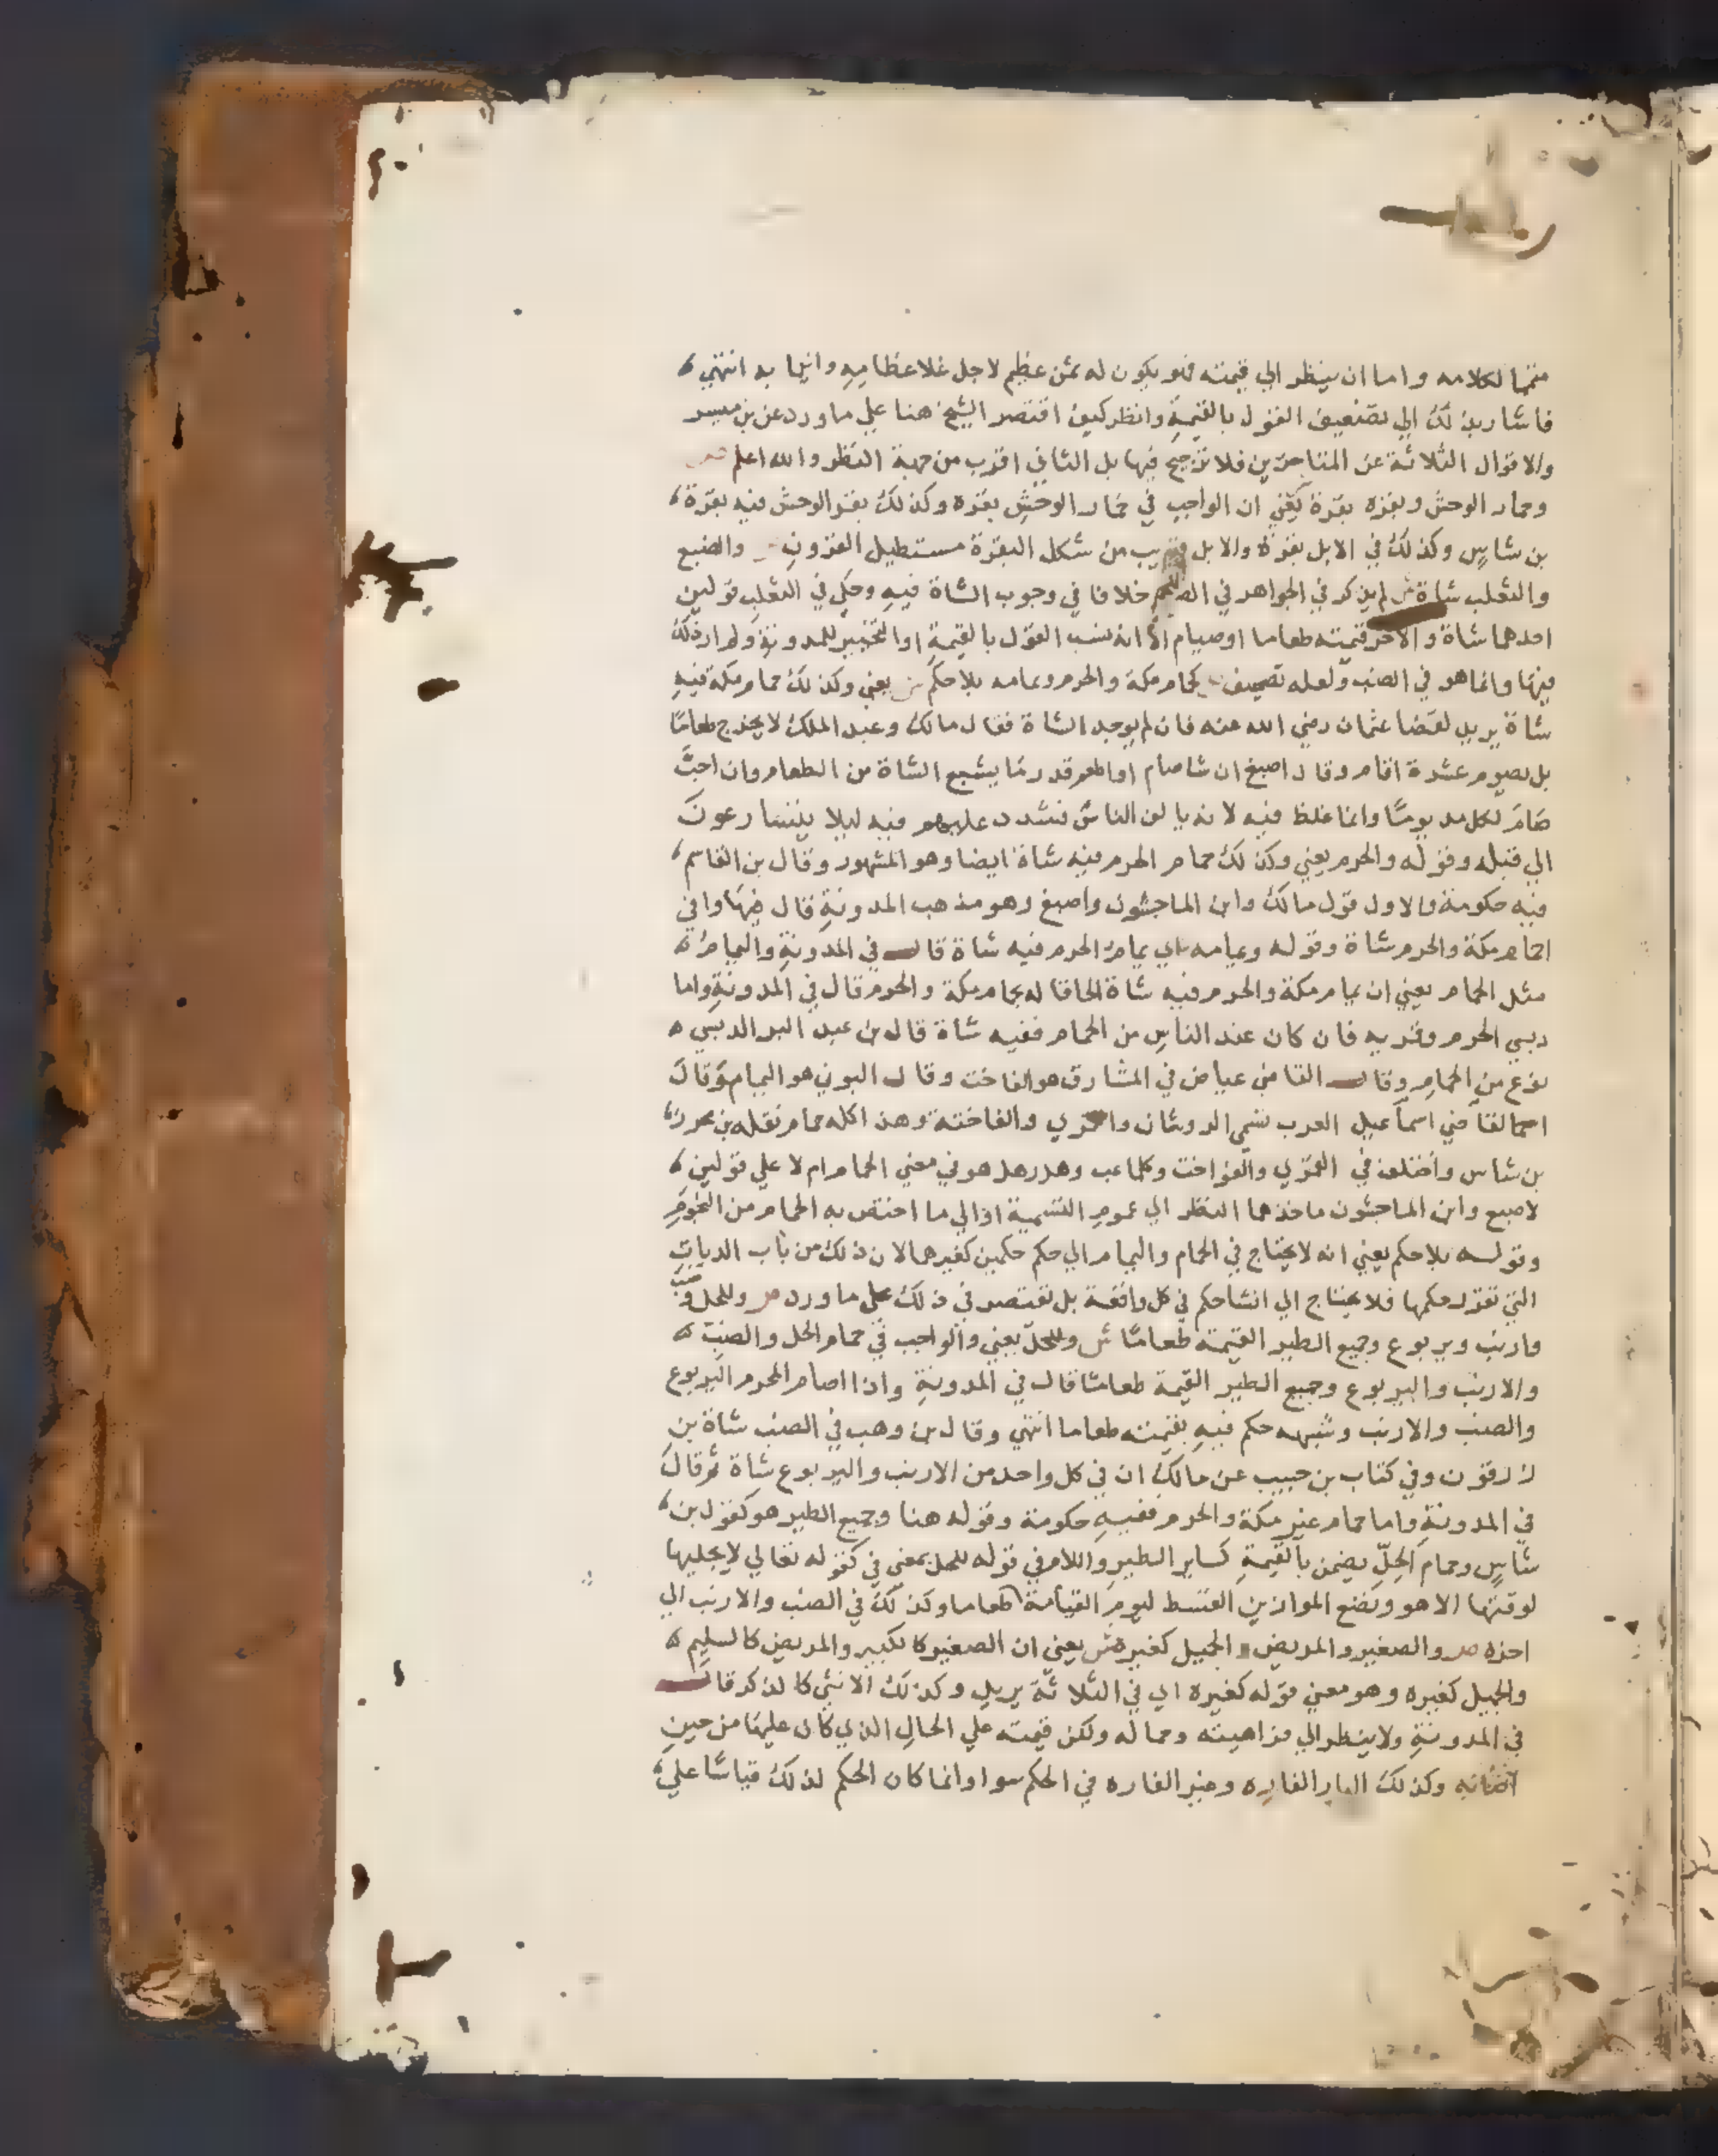 متمما لكلامه واما ان ينظر الي قيمته فلو يكون له ثمن عظيم لاجل غلا عظامه وانيابه انتهي
فاشار بذلك الي تضعيف القول بالقيمة وانظر كيف اقتصر الشيخ هنا علي ما ورد عن بن ميسر
والاقوال الثلاثة عن المتاخرين فلا ترجيح فيها بل الثاني اقرب من جهة النظر والله اعلم ص
وحمار الوحش وبقره بقرة يعني ان الواجب في حمار الوحش بقره وكذلك بقر الوحش فيه بقرة
بن شاس وكذلك في الابل بقرة والابل قريب من شكل البقرة مستطيل القرون والضبع
والثعلب شاة ش لم يذكر في الجواهر في خلافا في وجوب الشاة فيه وحكي في الثعلب قولين
احدهما شاة والاخر قيمته طعاما او صيام الا انه نسب القول بالقيمة او التخيير للمدونة ولم ار ذلك
فيها وانما هو في الضب ولعله تصحيف كحمام مكة والحرم ويمامه بلا حكم ش يعني وكذلك حمام مكة فيه
شاة يريد لقضا عثمان رضي الله عنه فان لم يوجد الشاة فقال مالك وعبد الملك لا يخرج طعاما
بل يصوم عشرة اقام وقال اصبغ ان شا صام او اطعم قدر ما يشبع الشاة من الطعام وان احب
صام لكل مد يوما وانما غلظ فيه لانه يالف الناس فشدد عليهم فيه ليلا يتسارعون
الي قتله وقوله والحرم يعني وكذلك حمام الحرم فيه شاة ايضا وهو المشهور وقال بن القاسم
فيه حكومة والاول قول مالك وابن الماجشون واصبغ وهو مذهب المدونة قال فيها وافي
احمام مكة والحرم شاة وقوله ويمامه اي يمام الحرم فيه شاة قال في المدونة واليمام
مثل الحمام يعني ان يمام مكة والحرم فيه شاة الحاقا له بحمام مكة والحرم قال في المدونة واما
دبسي الحرم وقمريه فان كان عند الناس من الحمام ففيه شاة قال بن عبد البر الدبسي
نوع من الحمام وقال القاضي عياض في المشارق هو الفاخت وقال البوني هو اليمام وقال
القاضي اسماعيل العرب تسمي الدوشان والقمري والفاختة وهذا كله حمام نقله بن محرز
بن شاس واختلف في القمري والفواخت وكلما عب وهدر هل هو في معني الحمام ام لا علي قولين
لاصبغ وابن الماجشون ماخذهما النظر الي عموم التسمية او الي ما اختص به الحمام من التحرم
وقوله بلا حكم يعني انه لا يحتاج في الحمام واليمام الي حكم حكمين كغيرهما لان ذلك من باب الديات
التي تقرر حكمها فلا يحتاج الي انشا حكم في كل واقعة بل نقتصر في ذلك علي ما ورد ص وللحل وضب
وارنب ويربوع وجميع الطير القيمة طعاما ش وللحل يعني والواجب في حمام الحل والضب
والارنب واليربوع وجميع الطير القيمة طعاما قال في المدونة واذا اصاب المحرم اليربوع
والضب والارنب وشبهه حكم فيه بقيمته طعاما انتهي وقال بن وهب في الضب شاة بن
زرقون وفي كتاب بن حبيب عن مالك ان في كل واحد من الارنب واليربوع شاة ثم قال
في المدونة واما حمام غير مكة والحرم ففيه حكومة وقوله هنا وجميع الطير هو كقول بن
شاس وحمام الحل يضمن بالقيمة كساير الطير واللام في قوله للحل بمعني في كقوله تعالي لا يجليها
لوقتها الا هو ونضع الموازين القسط ليوم القيامة طعاما وكذلك في الضب والارنب الي
اخره ص والصغير والمريض والجميل كغيره ش يعني ان الصغير كالكبير والمريض كالسليم
والجميل كغيره وهو معني قوله كغيره اي في الثلاثة يريد وكذلك الانثي كالذكر قال
في المدونة ولا ينظر الي فراهيته وجماله ولكن قيمته علي الحال الذي كان عليها من حين
وكذلك الباز الفاره وغير الفاره في الحكم سوا وانما كان الحكم لذلك قياسا علي